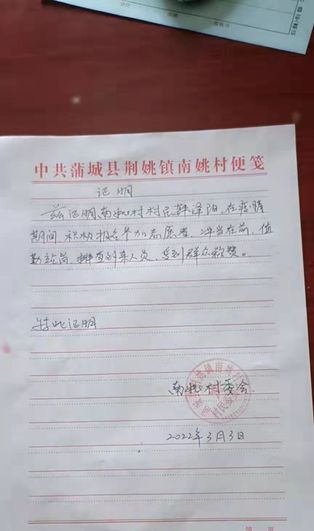 中共蒲城县荆姚镇南姚村便笺
证明
兹证明南姚村村民韩泽阳,在疫情
期间,积极报名参加志愿者,冲当在前,值
勤站岗,排查到来人员,受到群众称赞。
特此证明
南姚村委会
2022年3月3日